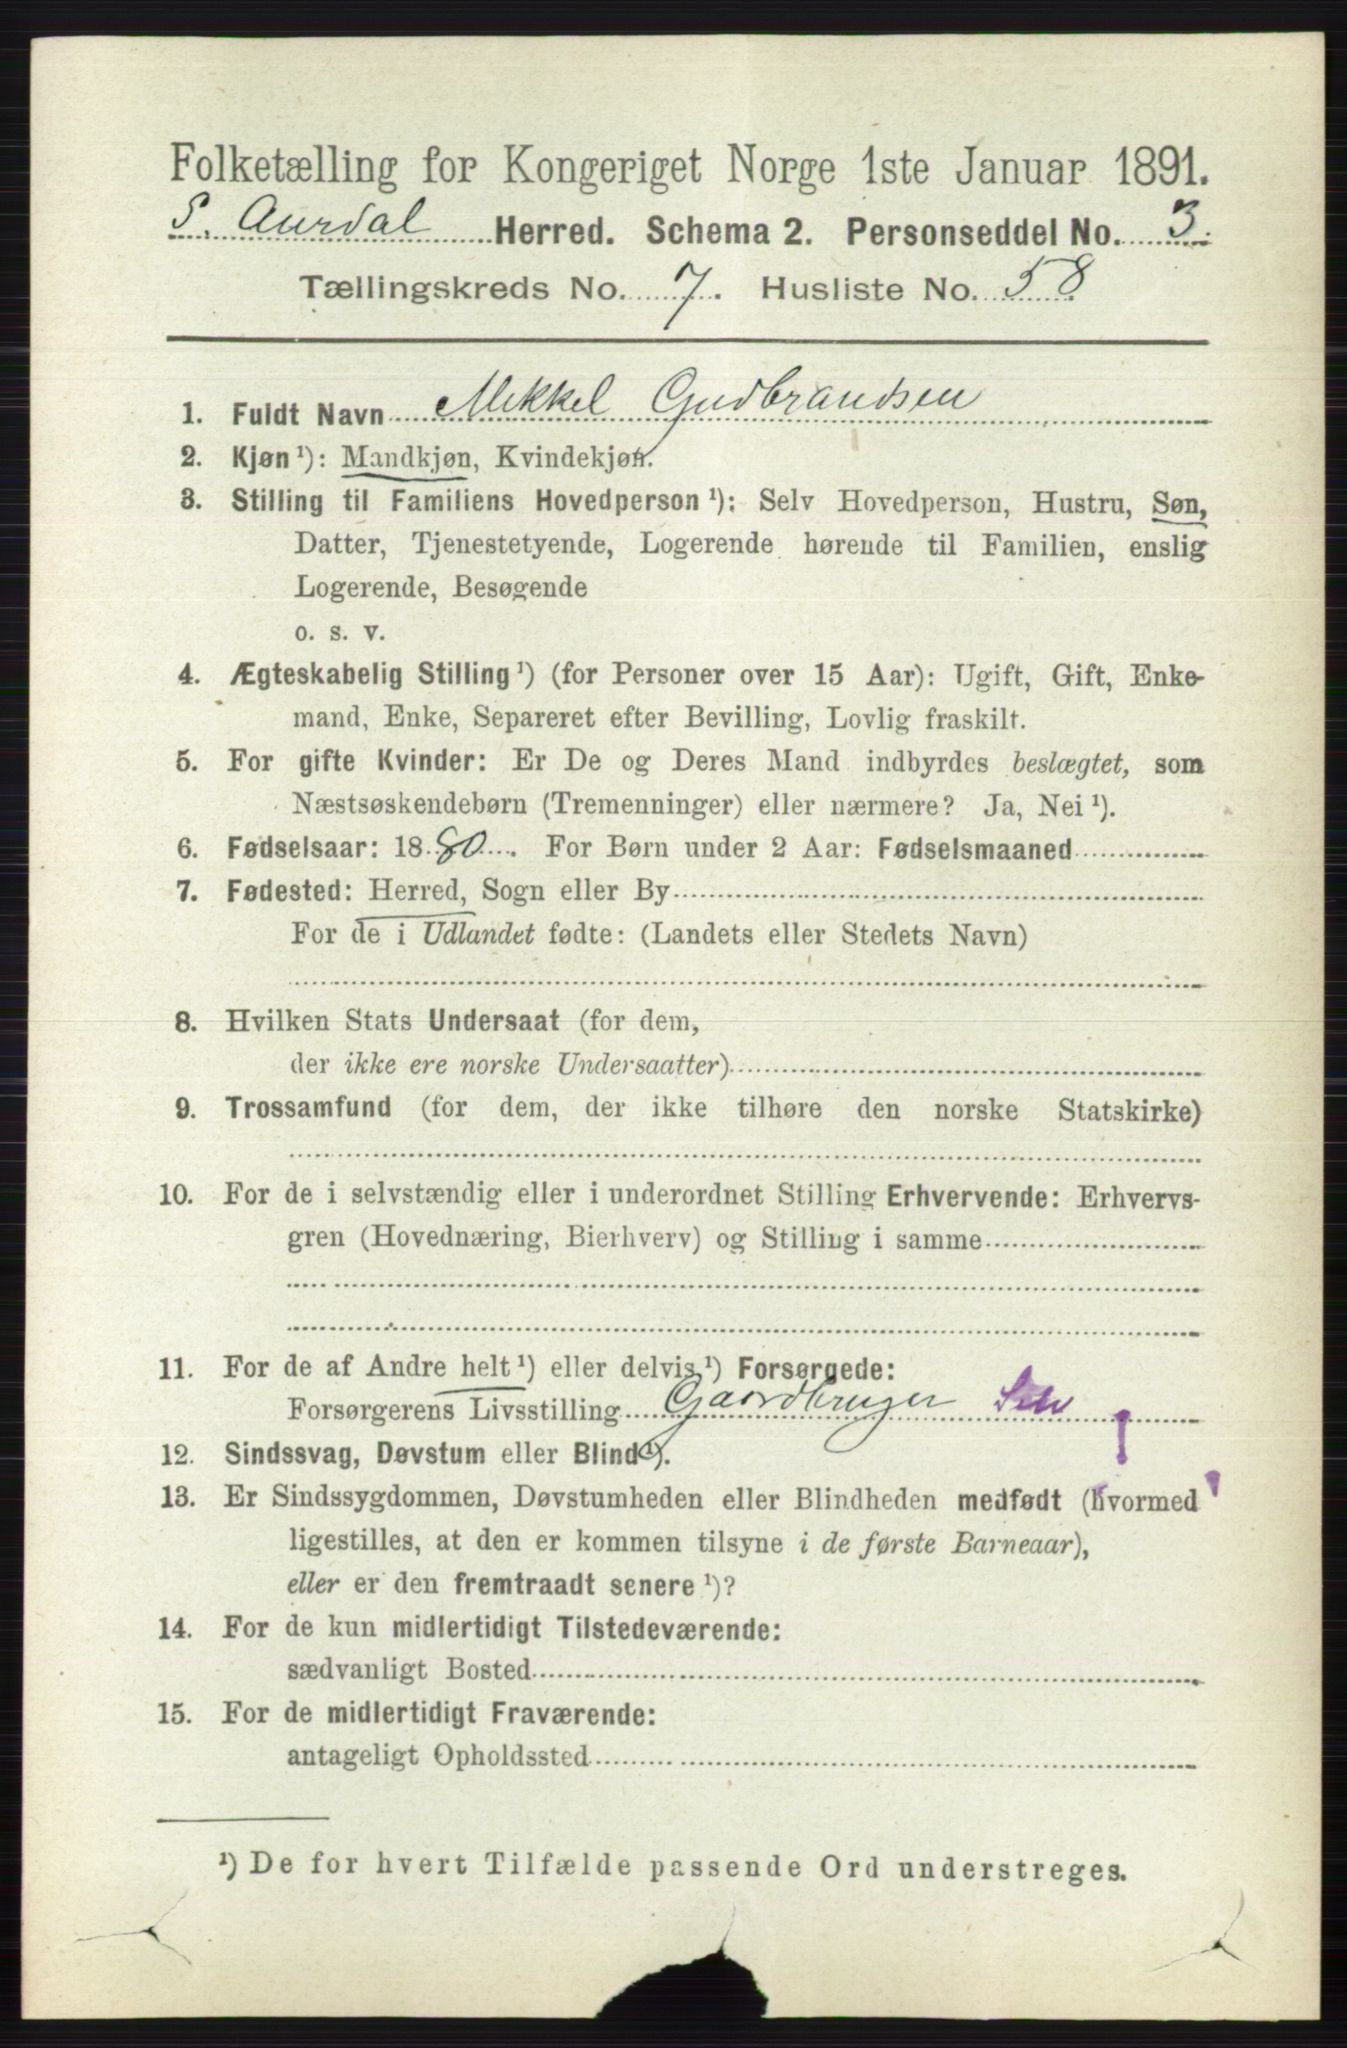 Folketælling for Kongeriget Norge 1ste Januar 1891.
S. Aurdal Herred. Schema 2. Personseddel No. 3.
Tællingskreds No. 7. Husliste No. 58
1. Fuldt Navn Mikkel Gudbrandsen
2. Kjøn ¹): Mandkjøn, Kvindekjøn.
3. Stilling til Familiens Hovedperson ¹): Selv Hovedperson, Hustru, Søn,
Datter, Tjenestetyende, Logerende hørende til Familien, enslig
Logerende, Besøgende
o. s. v.
4. Ægteskabelig Stilling ¹) (for Personer over 15 Aar): Ugift, Gift, Enke-
mand, Enke, Separeret efter Bevilling, Lovlig fraskilt.
5. For gifte Kvinder: Er De og Deres Mand indbyrdes beslægtet, som
Næstsøskendebørn (Tremenninger) eller nærmere? Ja, Nei ¹).
6. Fødselsaar: 1880. For Børn under 2 Aar: Fødselsmaaned
7. Fødested: Herred, Sogn eller By
For de i Udlandet fødte: (Landets eller Stedets Navn)
8. Hvilken Stats Undersaat (for dem,
der ikke ere norske Undersaatter)
9. Trossamfund (for dem, der ikke tilhøre den norske Statskirke)
10. For de i selvstændig eller i underordnet Stilling Erhvervende: Erhvervs-
gren (Hovednæring, Bierhverv) og Stilling i samme
11. For de af Andre helt ¹) eller delvis ¹) Forsørgede:
Forsørgerens Livsstilling Gaardbruger Selv
12. Sindssvag, Døvstum eller Blind ¹).
13. Er Sindssygdommen, Døvstumheden eller Blindheden medfødt (hvormed
ligestilles, at den er kommen tilsyne i de første Barneaar),
eller er den fremtraadt senere ¹)?
14. For de kun midlertidigt Tilstedeværende:
sædvanligt Bosted
15. For de midlertidigt Fraværende:
antageligt Opholdssted
¹) De for hvert Tilfælde passende Ord understreges.